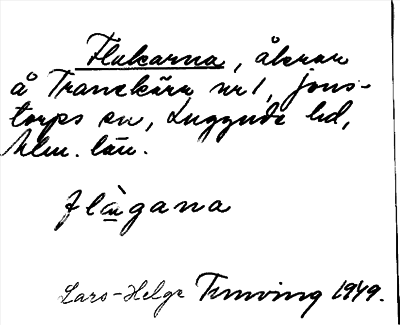 Flakarna, åkrar
å Tranekärr nr 1, Jons-
torps sn, Luggude hd,
Mlm. län.
flàgana
Lars-Helge Tunving 1949.